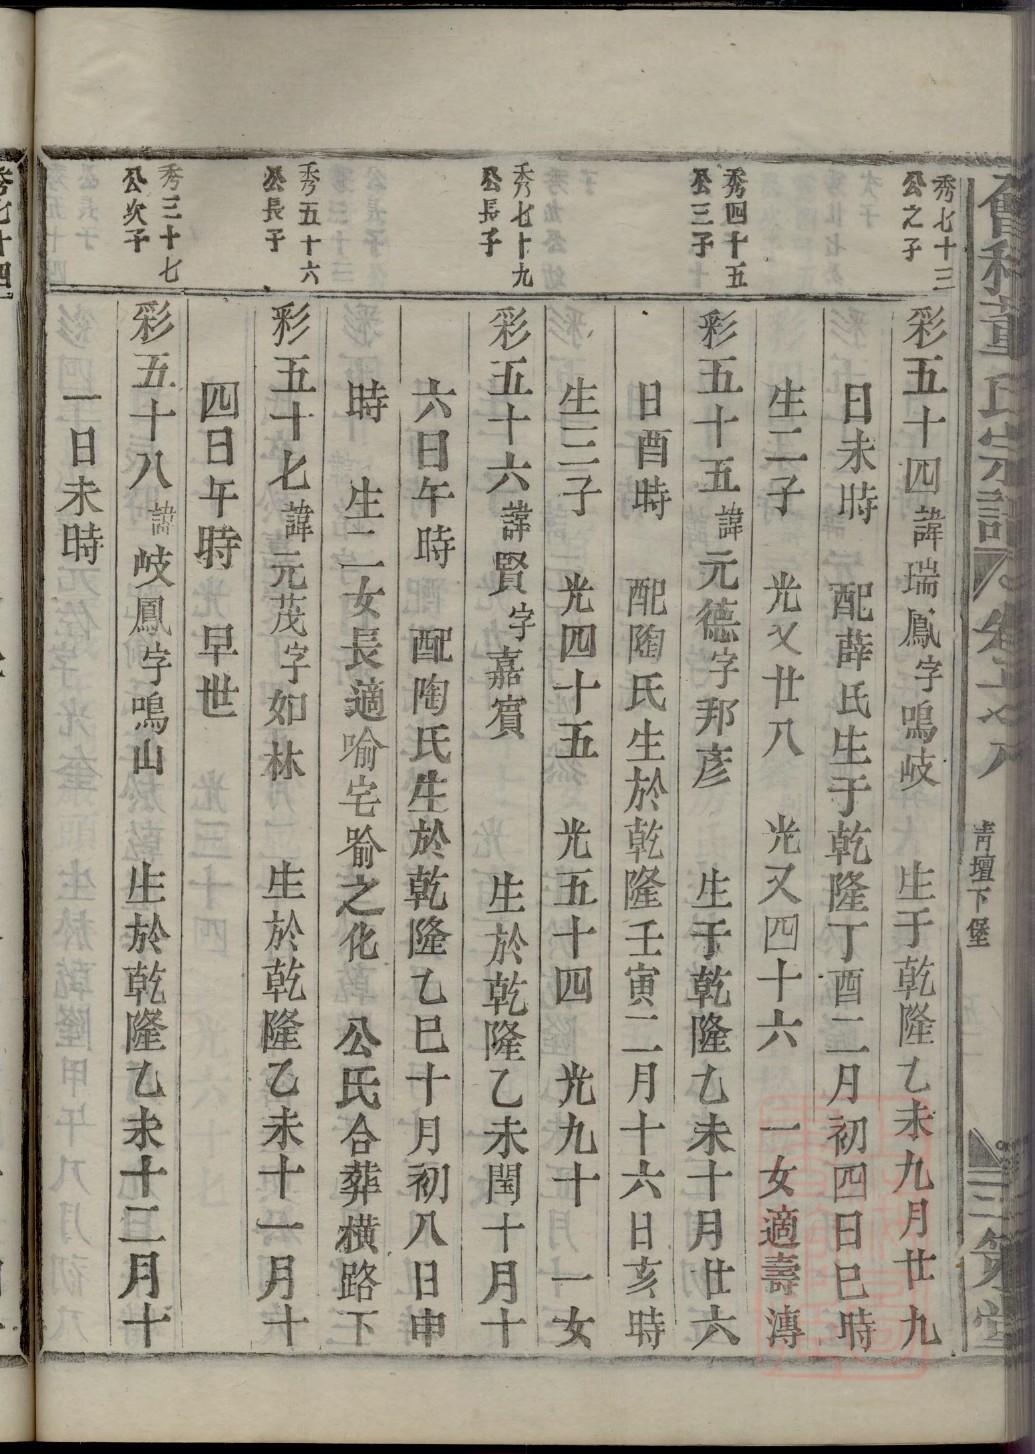 會稽董氏宗譜 卷五之八 靑壇下堡 三策堂
秀七十三
公之子
彩五十四諱瑞鳳字鳴岐 生于乾隆乙未九月廿九
日未時 配薛氏生于乾隆丁酉二月初四日巳時
生二子 光又廿八 光又四十六 一女適壽溥
秀四十五
公三子
彩五十五諱元德字邦彦 生于乾隆乙未十月廿六
日酉時 配陶氏生於乾隆壬寅二月十六日亥時
生三子 光四十五 光五十四 光九十 一女
秀七十九
公長子
彩五十六諱賢字嘉賓 生於乾隆乙未閏十月十
六日午時 配陶氏生於乾隆乙巳十月初八日申
時 生二女長適喻宅喻之化 公氏合葬橫路下
秀五十六
公長子
彩五十七諱元茂字如林 生於乾隆乙未十一月十
四日午時 早世
秀三十七
公次子
彩五十八諱岐鳳字鳴山 生於乾隆乙未十二月十
一日未時
秀七十四